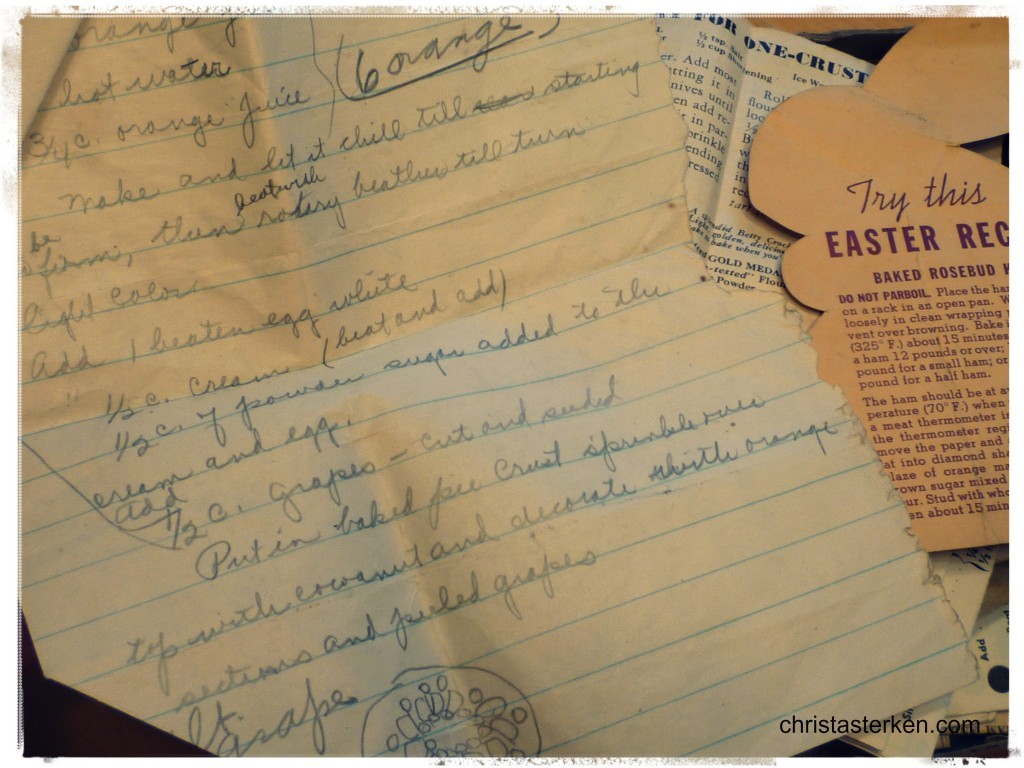 orange
hot water
3/4 c. orange juice
(6 orange)
make and let it chill till starting
be firm, then beat with rotary beather till turn
light color.
Add 1 beaten egg white
1/2 c. cream (beat and add)
1/2 c. of powder sugar added to the
cream and egg.
add
1/2 c. grapes - cut and seeded
Put in baked pie crust sprinkle over
top with cocoanut and decorate with orange
sections and peeled grapes
lt. grape
FOR ONE-CRUST
1/2 tsp.
1/2 cup
Ice
er. Add most
tting it in
nives until
en add
in par-
prinkle
ending
ressed
Betty Croc
Light golden, delicio
bake when you
GOLD MEDA
-tested" Flou
Powder
Try this
EASTER REC
BAKED ROSEBUD H
DO NOT PARBOIL. Place the ha
on a rack in an open pan. W
loosely in clean wrapping
vent over browning. Bake i
(325° F.) about 15 minutes
a ham 12 pounds or over;
pound for a small ham; or
pound for a half ham.
The ham should be at a
perature (70° F.) when
a meat thermometer in
the thermometer regi
move the paper and
at into diamond sha
laze of orange ma
rown sugar mixed
ur. Stud with who
en about 15 min
Add
christasterken.com